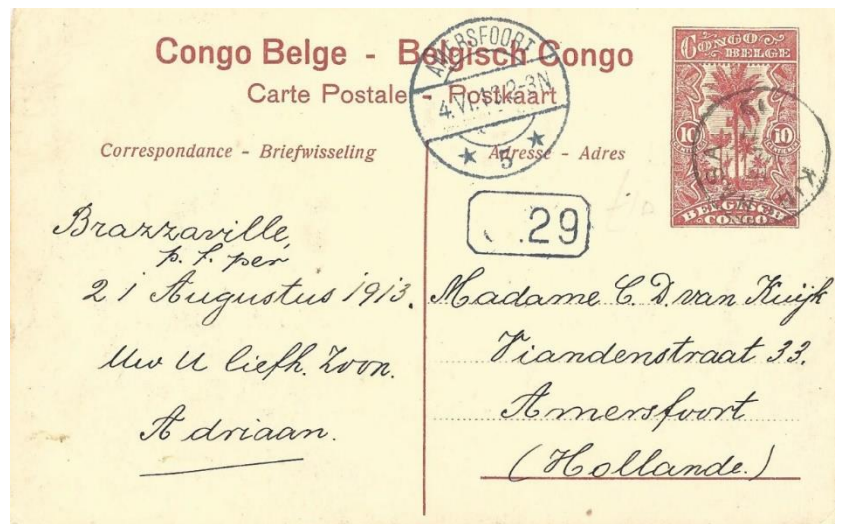 Congo Belge - Belgisch Congo
Carte Postale - Postkaart
Correspondance - Briefwisseling
Adresse - Adres
CONGO
BELGE
10 10
BELGISCH
CONGO
AMERSFOORT
2-3N
5
29
Brazzaville,
p. f. per
21 Augustus 1913.
Uw U liefh. Zoon.
Adriaan.
Madame C. D. van Kuijk
Viandenstraat 33.
Amersfoort
(Hollande.)